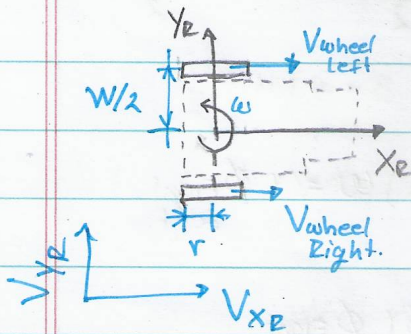 YR
Vwheel
Left
W/2
ω
XR
r
Vwheel
Right.
VYR
VXR